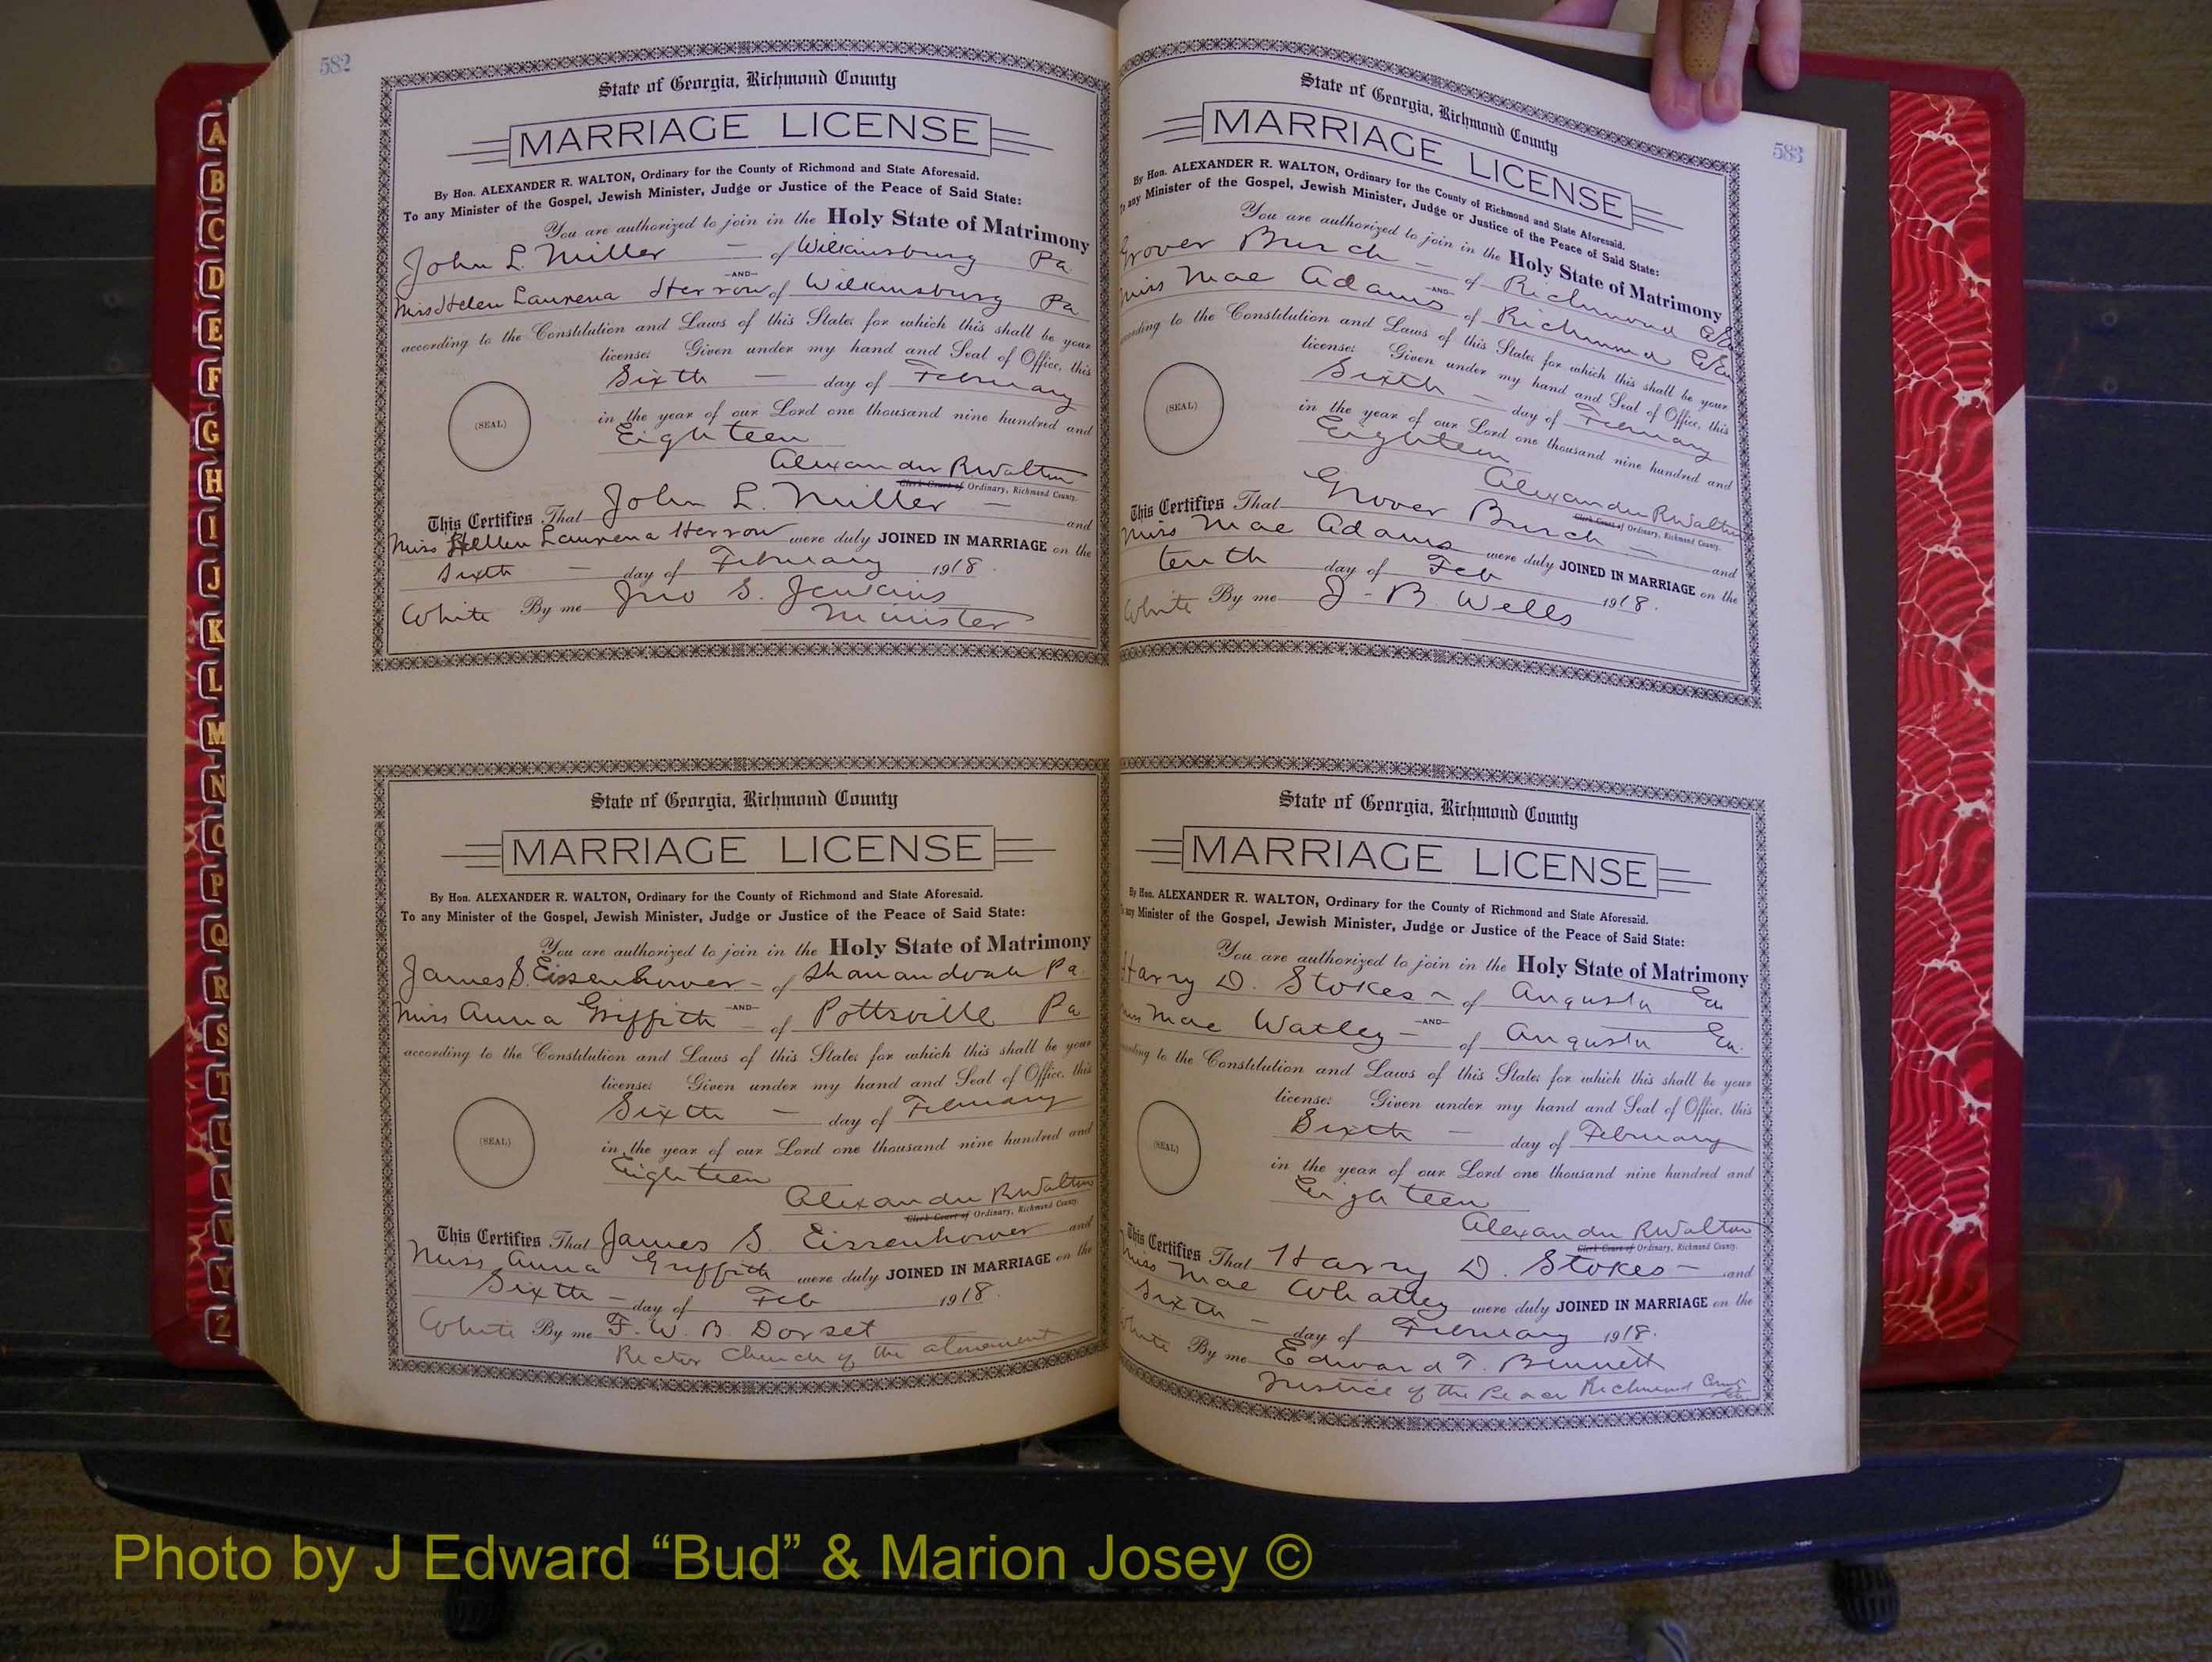 582
State of Georgia, Richmond County
MARRIAGE LICENSE
By Hon. ALEXANDER R. WALTON, Ordinary for the County of Richmond and State Aforesaid.
To any Minister of the Gospel, Jewish Minister, Judge or Justice of the Peace of Said State:
You are authorized to join in the Holy State of Matrimony
John L. Miller — of Wilkinsburg Pa
—AND—
Miss Helen Laurena Herrow of Wilkinsburg Pa
according to the Constitution and Laws of this State; for which this shall be your
license: Given under my hand and Seal of Office, this
Sixth — day of February
(SEAL)
in the year of our Lord one thousand nine hundred and
Eighteen
Alexander R Walton
Clerk Court of Ordinary, Richmond County.
This Certifies That John L. Miller — and
Miss Hellen Laurena Herrow were duly JOINED IN MARRIAGE on the
Sixth — day of February 1918.
White By me Jno S. Jenkins
Minister
State of Georgia, Richmond County
MARRIAGE LICENSE
By Hon. ALEXANDER R. WALTON, Ordinary for the County of Richmond and State Aforesaid.
To any Minister of the Gospel, Jewish Minister, Judge or Justice of the Peace of Said State:
You are authorized to join in the Holy State of Matrimony
James S. Eissenhower — of Shanandoah Pa.
—AND—
Miss Anna Griffith — of Pottsville Pa
according to the Constitution and Laws of this State; for which this shall be your
license: Given under my hand and Seal of Office, this
Sixth — day of February
(SEAL)
in the year of our Lord one thousand nine hundred and
Eighteen
Alexander R Walton
Clerk Court of Ordinary, Richmond County.
This Certifies That James S. Eissenhower and
Miss Anna Griffith were duly JOINED IN MARRIAGE on the
Sixth — day of Feb 1918.
White By me F. W. B. Dorset
Rector Church of the atonement
583
State of Georgia, Richmond County
MARRIAGE LICENSE
By Hon. ALEXANDER R. WALTON, Ordinary for the County of Richmond and State Aforesaid.
To any Minister of the Gospel, Jewish Minister, Judge or Justice of the Peace of Said State:
You are authorized to join in the Holy State of Matrimony
Grover Burch — of Richmond
—AND—
Miss Mae Adams of Richmond
according to the Constitution and Laws of this State; for which this shall be your
license: Given under my hand and Seal of Office, this
Sixth — day of February
(SEAL)
in the year of our Lord one thousand nine hundred and
Eighteen
Alexander R Walton
Clerk Court of Ordinary, Richmond County.
This Certifies That Grover Burch — and
Miss Mae Adams were duly JOINED IN MARRIAGE on the
tenth day of Feb 1918.
White By me J. B. Wells
State of Georgia, Richmond County
MARRIAGE LICENSE
By Hon. ALEXANDER R. WALTON, Ordinary for the County of Richmond and State Aforesaid.
To any Minister of the Gospel, Jewish Minister, Judge or Justice of the Peace of Said State:
You are authorized to join in the Holy State of Matrimony
Harry D. Stokes — of Augusta Ga
—AND—
Miss Mae Watley — of Augusta Ga.
according to the Constitution and Laws of this State; for which this shall be your
license: Given under my hand and Seal of Office, this
Sixth — day of February
(SEAL)
in the year of our Lord one thousand nine hundred and
Eighteen
Alexander R Walton
Clerk Court of Ordinary, Richmond County.
This Certifies That Harry D. Stokes — and
Miss Mae Whatley were duly JOINED IN MARRIAGE on the
Sixth — day of February 1918.
White By me Edward T. Bennett
Justice of the Peace Richmond
A
B
C
D
E
F
G
H
I
J
K
L
M
N
O
P
Q
R
S
T
U
V
W
Y
Z
Photo by J Edward “Bud” & Marion Josey ©